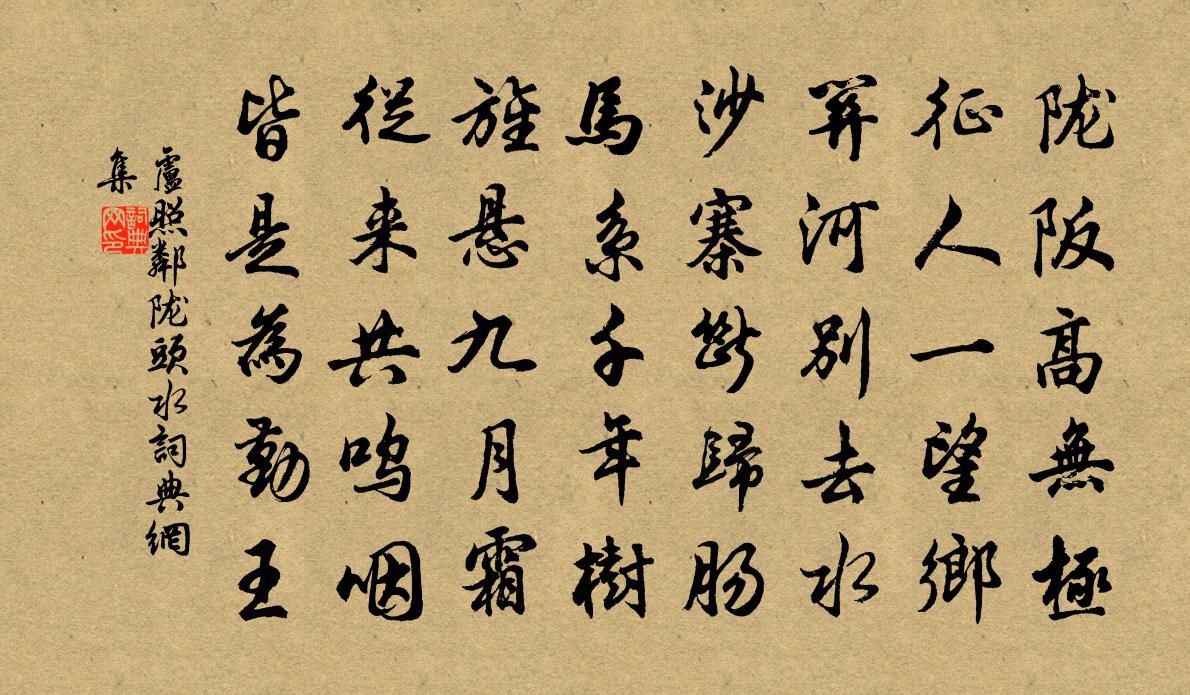 陇阪髙無極
征人一望鄉
關河別去水
沙寨斷歸腸
馬系千年樹
旌悬九月霜
從来共呜咽
皆是為勤王
盧照鄰陇頭水詞典網
集
詞典
网印